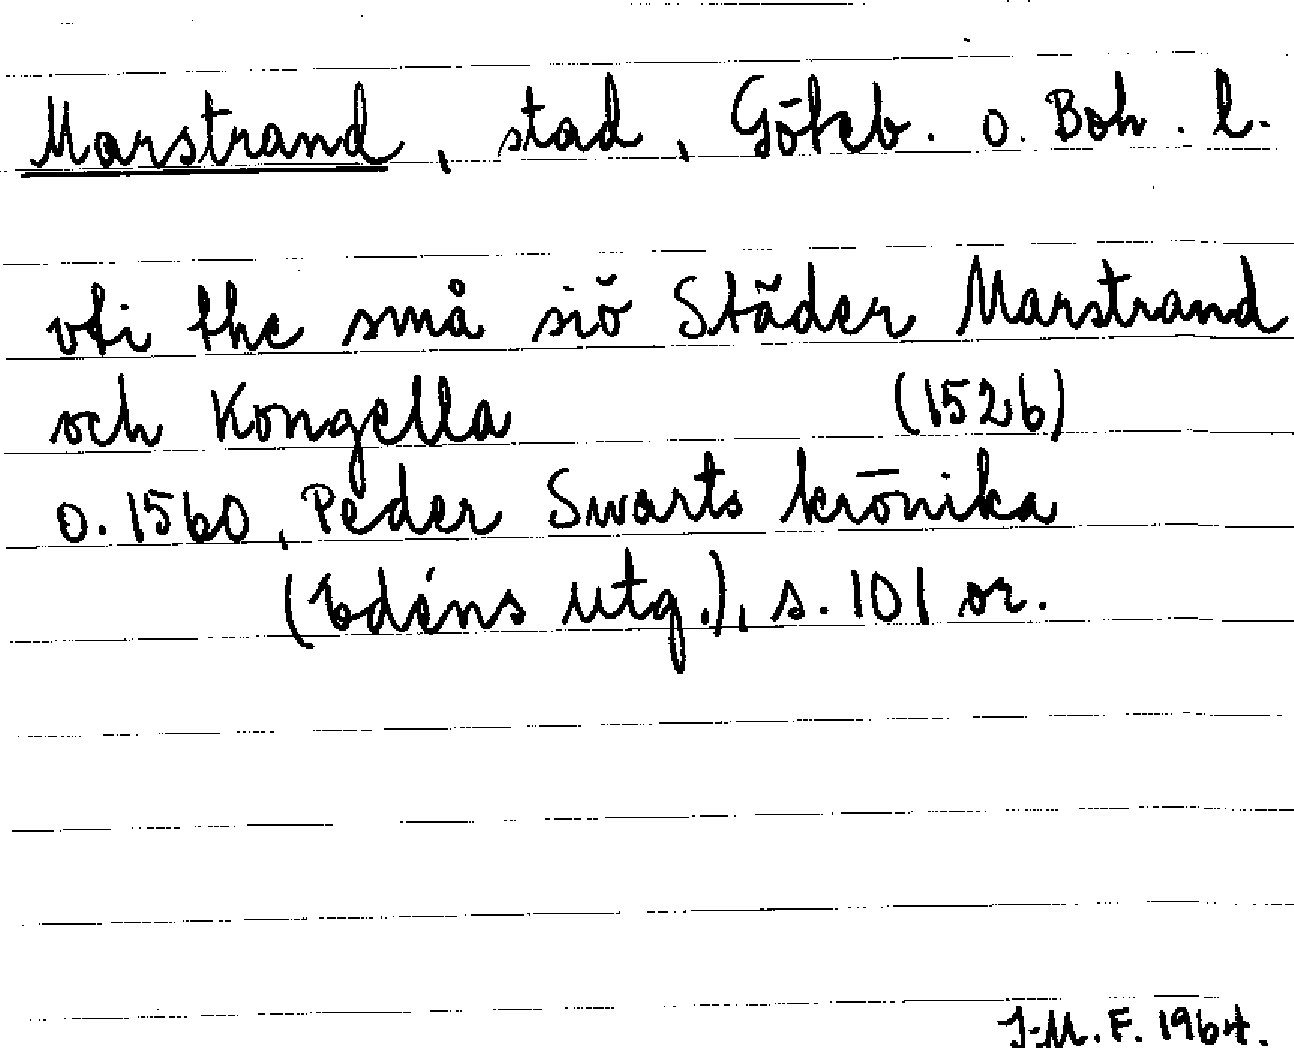 Marstrand, stad, Göteb. o. Boh. l.
vti the små siö Städer Marstrand
och Kongella (1526)
o. 1560, Peder Swarts krönika
(Edéns utg.), s. 101 or.
J-M. F. 1964.